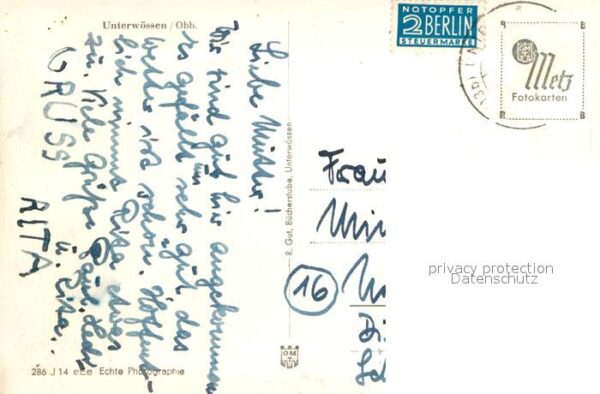 Unterwössen / Obb.
Liebe Mutter!
Wir sind gut hier angekommen
es gefällt uns sehr gut das
Wetter ist schön. Hoffent-
lich nimmt Rita was
zu. Viele Grüße
u. Rita..
GRUSS
RITA
R. Gut, Bücherstube, Unterwössen
286 J 14 Echte Photographie
NOTOPFER
2 BERLIN
STEUERMARKE
(13b)
Metz
Fotokarten
Frau
16
privacy protection
Datenschutz